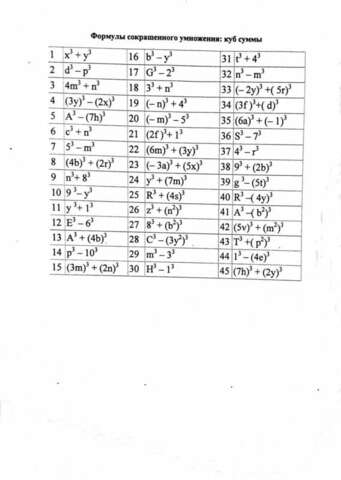 Формулы сокращенного умножения: куб суммы
1 x³ + y³ 16 b³ – y³ 31 t³ + 4³
2 d³ – p³ 17 G³ – 2³ 32 n³ – m³
3 4m³ + n³ 18 3³ + n³ 33 (– 2y)³ +( 5r)³
4 (3y)³ – (2x)³ 19 (– n)³ + 4³ 34 (3f )³+( d)³
5 A³ – (7h)³ 20 (– m)³ – 5³ 35 (6a)³ + (– 1)³
6 c³ + n³ 21 (2f )³+ 1³ 36 S³ – 7³
7 5³ – m³ 22 (6m)³ + (3y)³ 37 4³ – r³
8 (4b)³ + (2r)³ 23 (– 3a)³ + (5x)³ 38 9³ + (2b)³
9 n³+ 8³ 24 y³ + (7m)³ 39 g ³– (5t)³
10 9 ³– y³ 25 R³ + (4s)³ 40 R³ –( 4y)³
11 y ³+ 1³ 26 z³ + (n²)³ 41 A³ –( b²)³
12 E³ – 6³ 27 8³ + (b²)³ 42 (5v)³ + (m²)³
13 A³ + (4b)³ 28 C³ – (3y²)³ 43 T³ +( p²)³
14 p³ – 10³ 29 m³ – 3³ 44 1³ – (4e)³
15 (3m)³ + (2n)³ 30 H³ – 1³ 45 (7h)³ + (2y)³